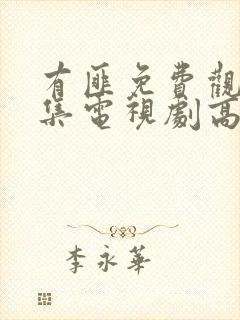 有匪免費觀
集電視劇高
李永華